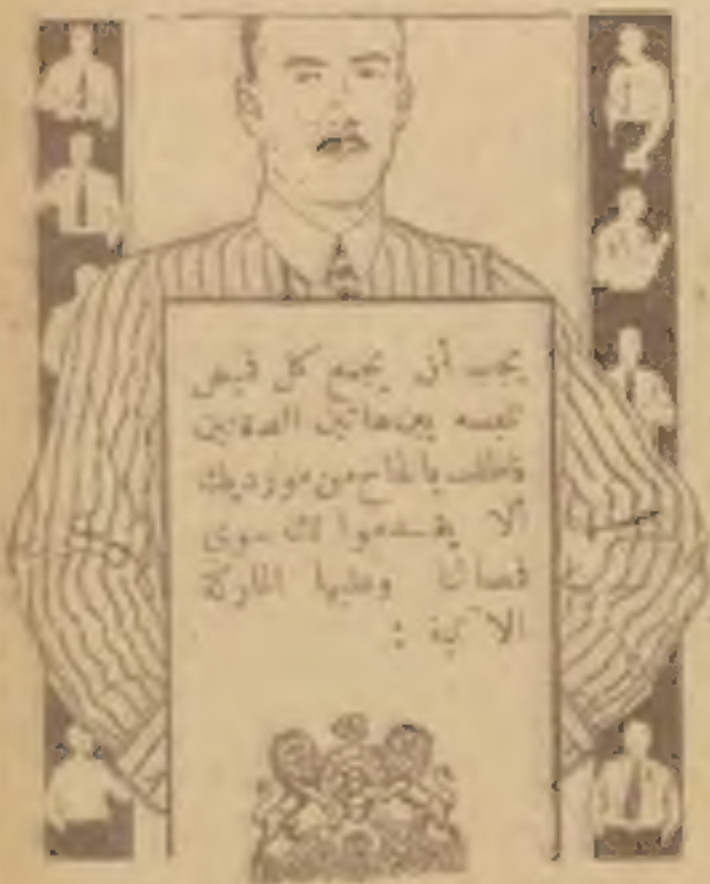 يجب أن يجمع كل قميص
تلبسه بين هاتين
فطلب بالحاح من مورديك
ألا يقدموا لك سوى
قصانا وعليها الماركة
الآتية :